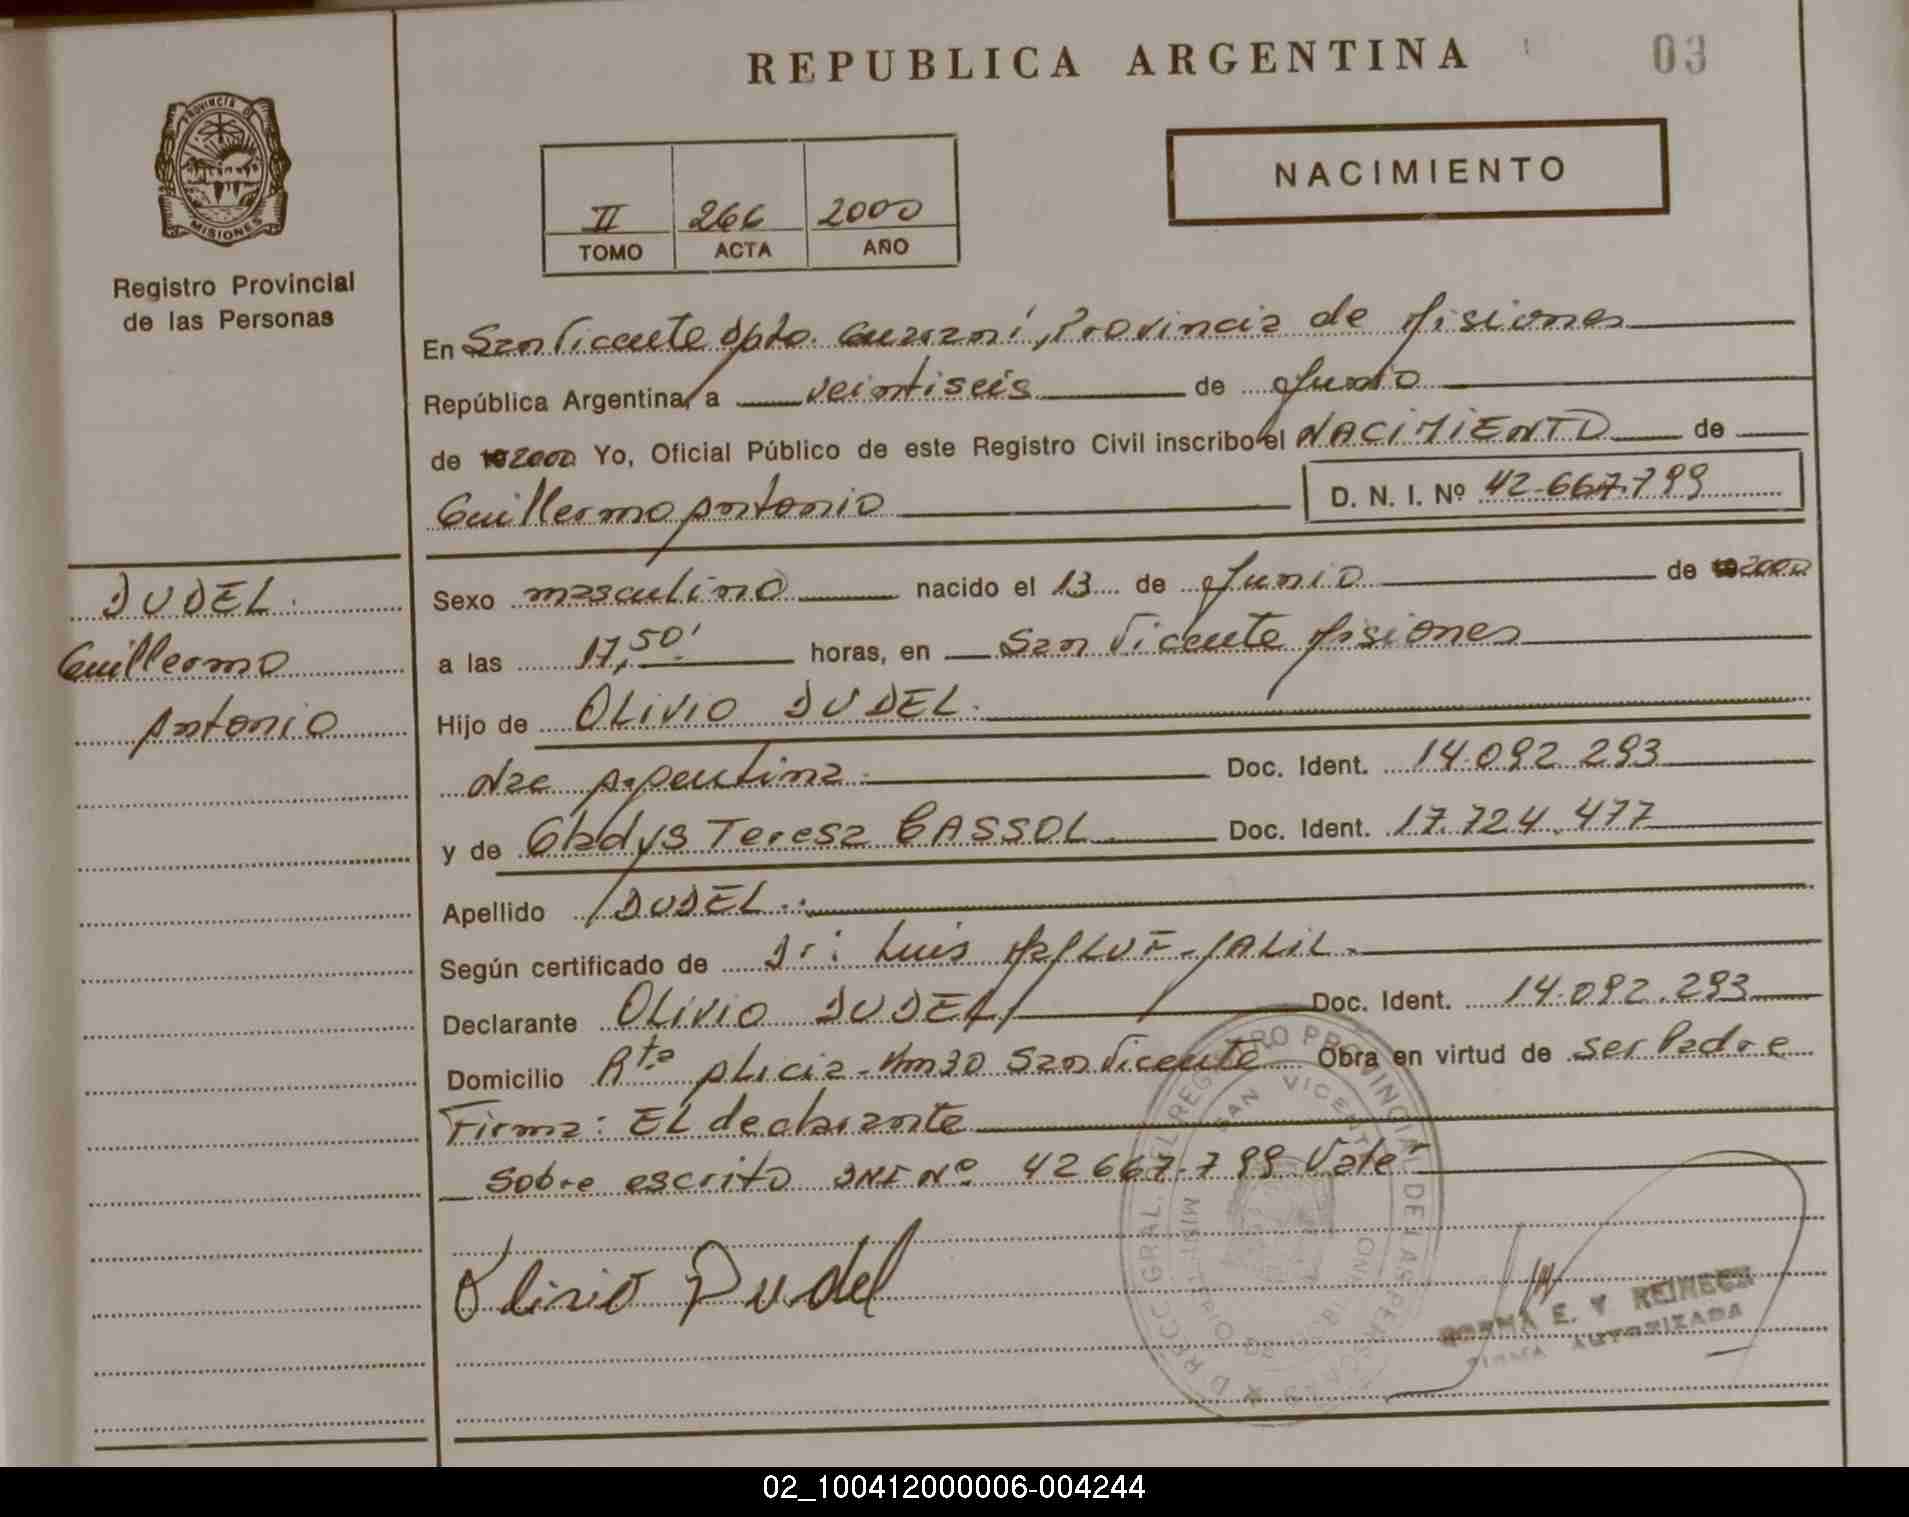 REPUBLICA ARGENTINA
03
PROVINCIA D
MISIONES
Registro Provincial
de las Personas
NACIMIENTO
II 266 2000
TOMO ACTA AÑO
En San Vicente Dpto. Guaraní, Provincia de Misiones
República Argentina, a veintiseis de Junio
de 2000 Yo, Oficial Público de este Registro Civil inscribo el NACIMIENTO de
Guillermo Antonio D. N. I. Nº 42.667.799
DUDEL.
Guillermo
Antonio
Sexo masculino nacido el 13 de Junio de 2000
a las 17,50' horas, en San Vicente Misiones
Hijo de OLIVIO DUDEL.
Nac Argentina Doc. Ident. 14.092.293
y de Gladys Teresa CASSOL Doc. Ident. 17.724.477
Apellido DUDEL
Según certificado de Dr: Luis JALIL
Declarante OLIVIO DUDEL Doc. Ident. 14.092.293
Domicilio Rta Alicia-Km30 San Vicente Obra en virtud de ser Padre
Firma: El declarante
Sobre escrito DNI Nº 42667.799 Vale
Olivio Dudel
NORMA E. V REINECK
FIRMA AUTORIZADA
SAN VICENTE
02_100412000006-004244